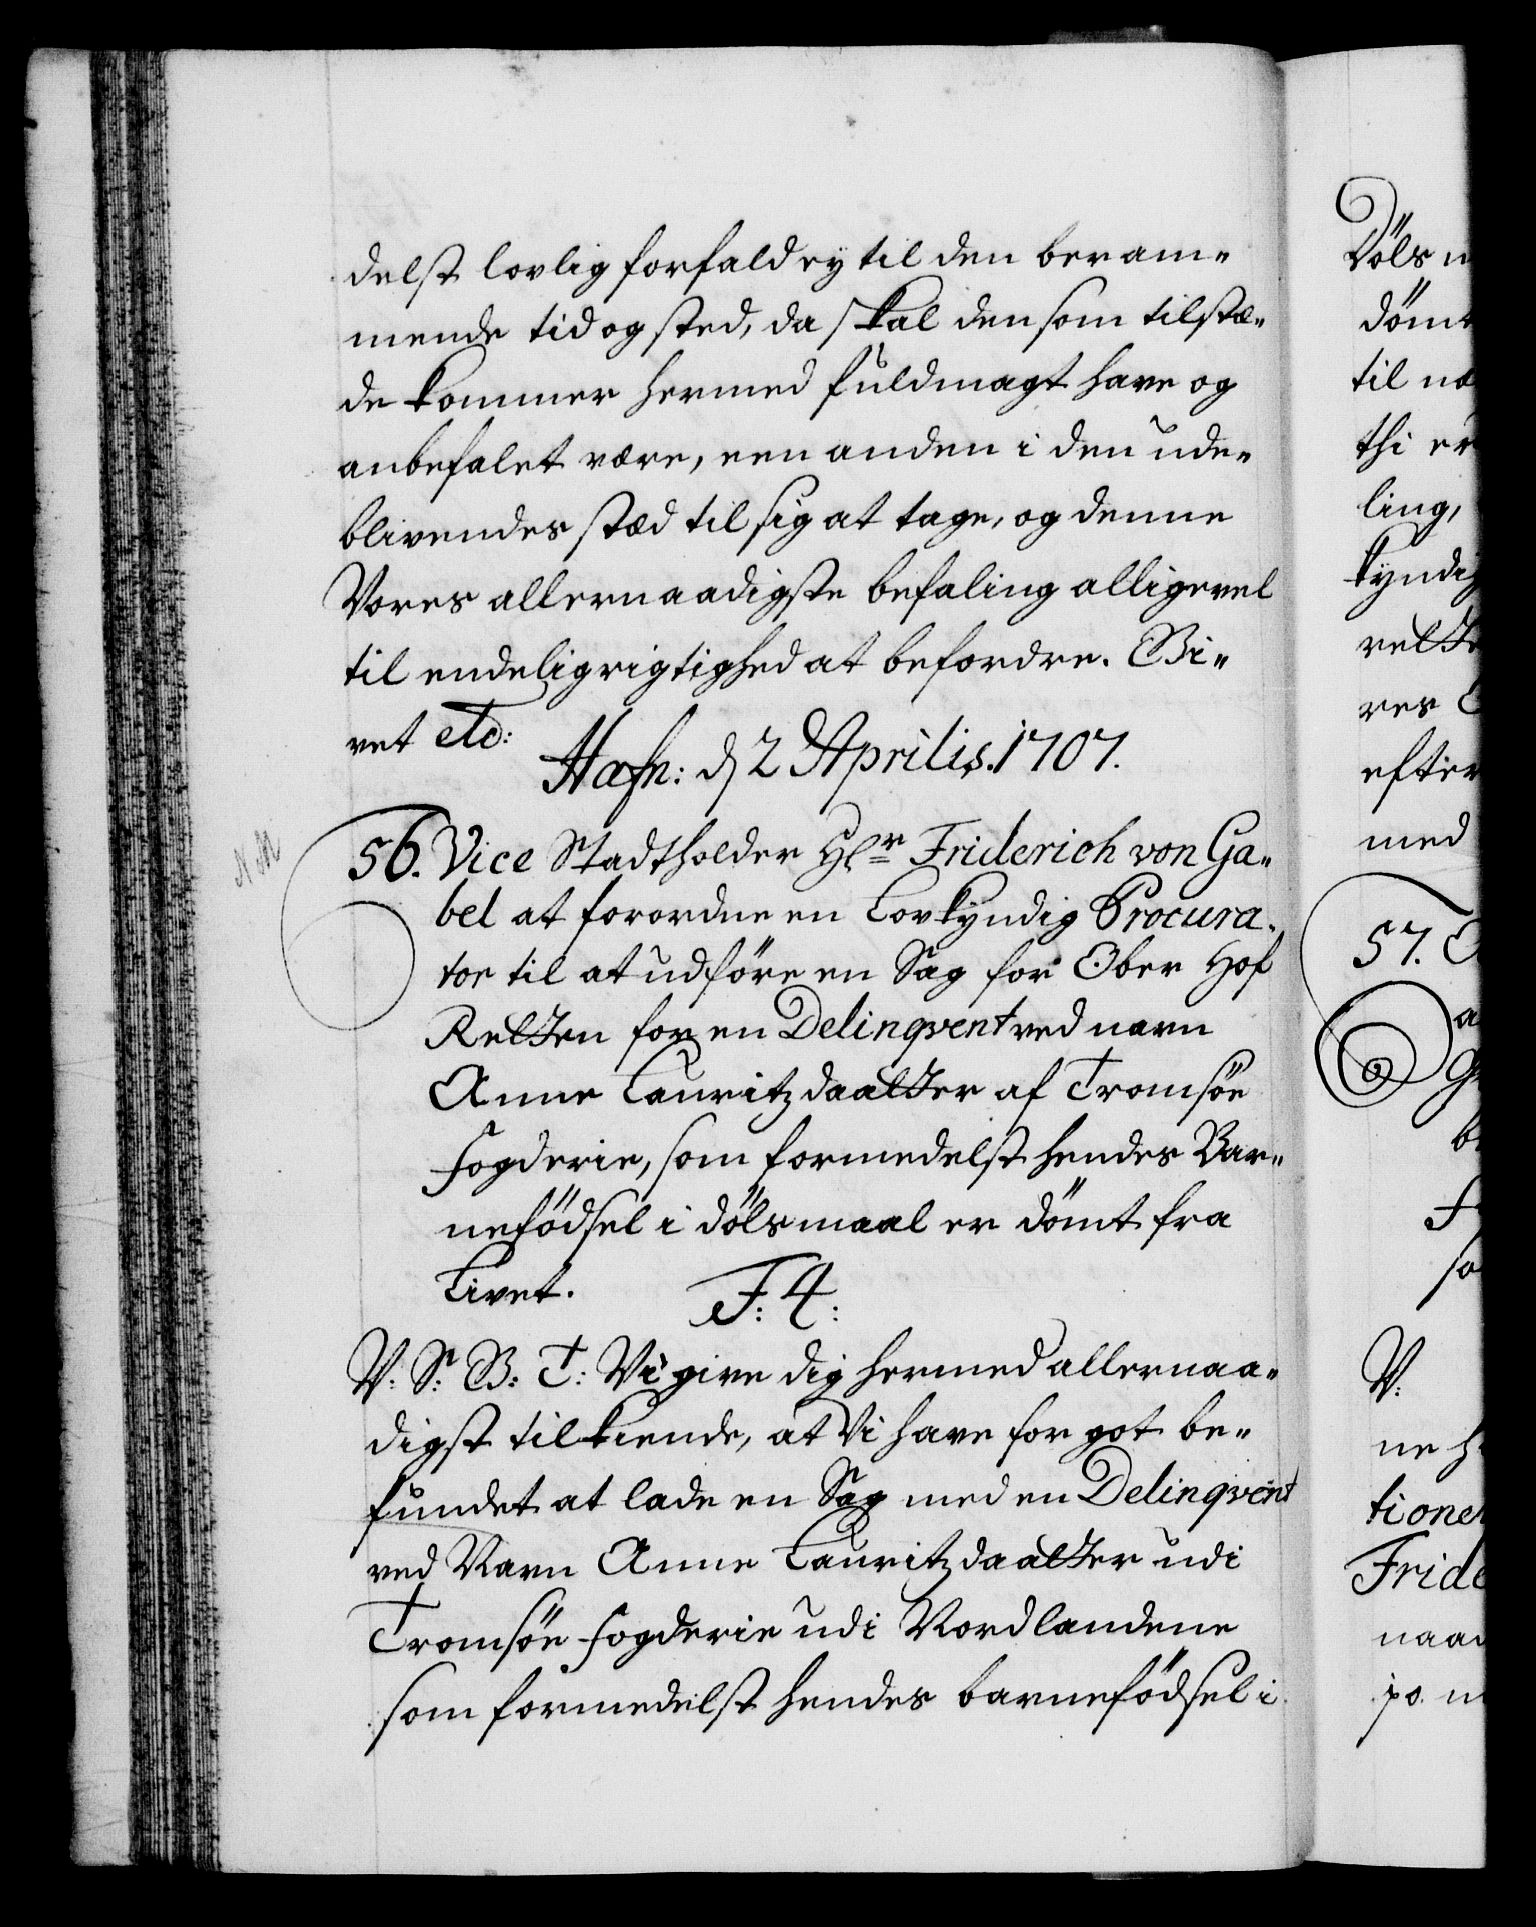 delst lovlig forfald ey til den beram„
mende tid og sted, da skal den som tilstæ„
de kommer hermed fuldmagt have og
anbefalet være, een anden i den ude„
blivendes stæd til sig at tage, og denne
Vores allernaadigste befaling alligevel
til endelig rigtighed at befordre. Gi„
vet etc:
Hafn: d 2 Aprilis. 1707.
N M
56. Vice Stadtholder Hr Friderich von Ga„
bel at forordne en Lovkyndig Procura„
tor til at udføre en Sag for Ober Hof
Retten for en Delinqvent ved navn
Anne Lauritzdaatter af Tromsöe
Fogderie, som formedelst hendes Bar„
nefödsel i dölsmaal er dömt fra
Livet. F: 4:
V: S: G: T: Vi give dig hermed allernaa„
digst tilkiende, at Vi have for got be„
fundet at lade en Sag med en Delinqvent
ved Navn Anne Lauritzdaatter udi
Tromsöe Fogderie udi Nordlandene
som formedelst hendes barnefödsel i
Döls
dömt
til
thi er
ling,
kyndig
rette
res
efter
med
57.
V:
ne
tione
Fride
naad